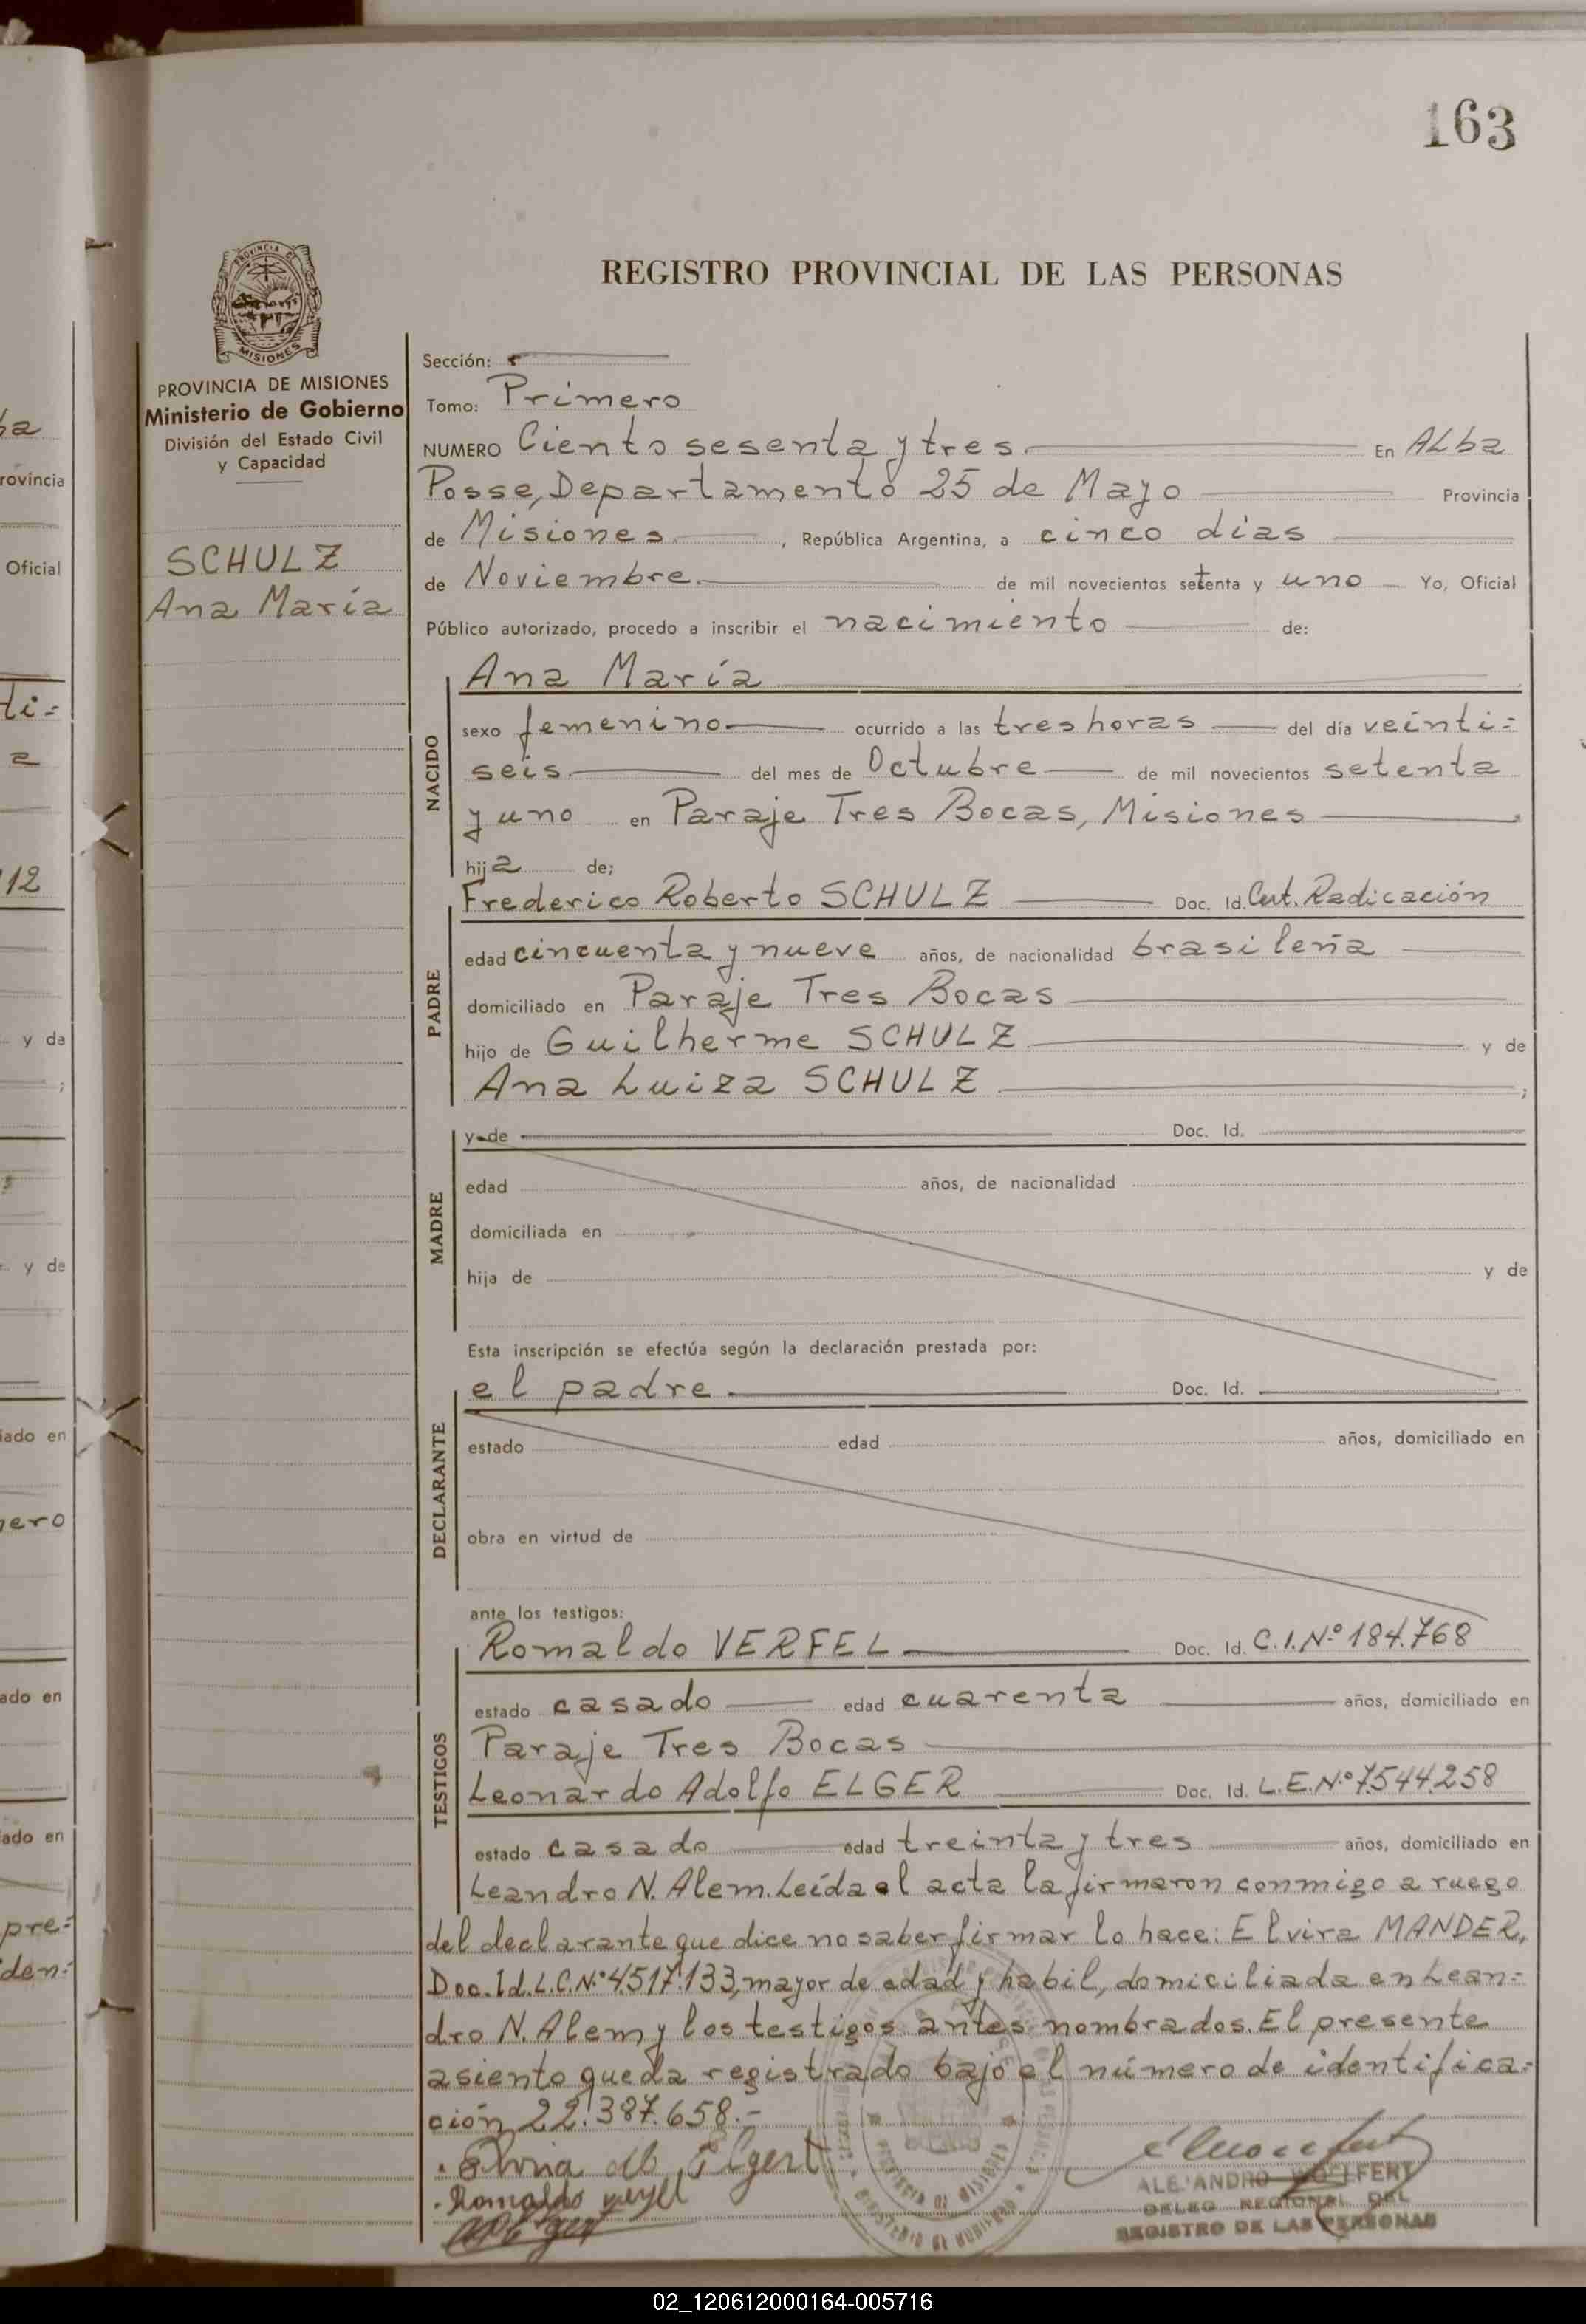 163
REGISTRO PROVINCIAL DE LAS PERSONAS
PROVINCIA DE MISIONES
Ministerio de Gobierno
División del Estado Civil
y Capacidad
SCHULZ
Ana María
Sección:
Tomo: Primero
NUMERO Ciento sesenta y tres En ALba
Posse, Departamento 25 de Mayo Provincia
de Misiones, República Argentina, a cinco días
de Noviembre de mil novecientos setenta y uno Yo, Oficial
Público autorizado, procedo a inscribir el nacimiento de:
NACIDO
Ana María
sexo femenino ocurrido a las tres horas del día veinti=
seis del mes de Octubre de mil novecientos setenta
y uno en Paraje Tres Bocas, Misiones
hija de;
PADRE
Frederico Roberto SCHULZ Doc. Id. Cert. Radicación
edad cincuenta y nueve años, de nacionalidad brasileña
domiciliado en Paraje Tres Bocas
hijo de Guilherme SCHULZ y de
Ana Luiza SCHULZ ;
MADRE
y de Doc. Id.
edad años, de nacionalidad
domiciliada en
hija de y de
Esta inscripción se efectúa según la declaración prestada por:
DECLARANTE
el padre Doc. Id.
estado edad años, domiciliado en
obra en virtud de
ante los testigos:
TESTIGOS
Romaldo VERFEL Doc. Id. C.I.Nº 184.768
estado casado edad cuarenta años, domiciliado en
Paraje Tres Bocas
Leonardo Adolfo ELGER Doc. Id. L.E.Nº 7.544.258
estado casado edad treinta y tres años, domiciliado en
Leandro N. Alem. Leída el acta la firmaron conmigo a ruego
del declarante que dice no saber firmar lo hace: Elvira MANDER,
Doc. Id. L.C.Nº 4.517.133, mayor de edad y habil, domiciliada en Lean=
dro N. Alem y los testigos antes nombrados. El presente
asiento queda registrado bajo el número de identifica=
ción 22.387.658.-
Romaldo
DELEG. REGIONAL DEL
REGISTRO DE LAS PERSONAS
02_120612000164-005716